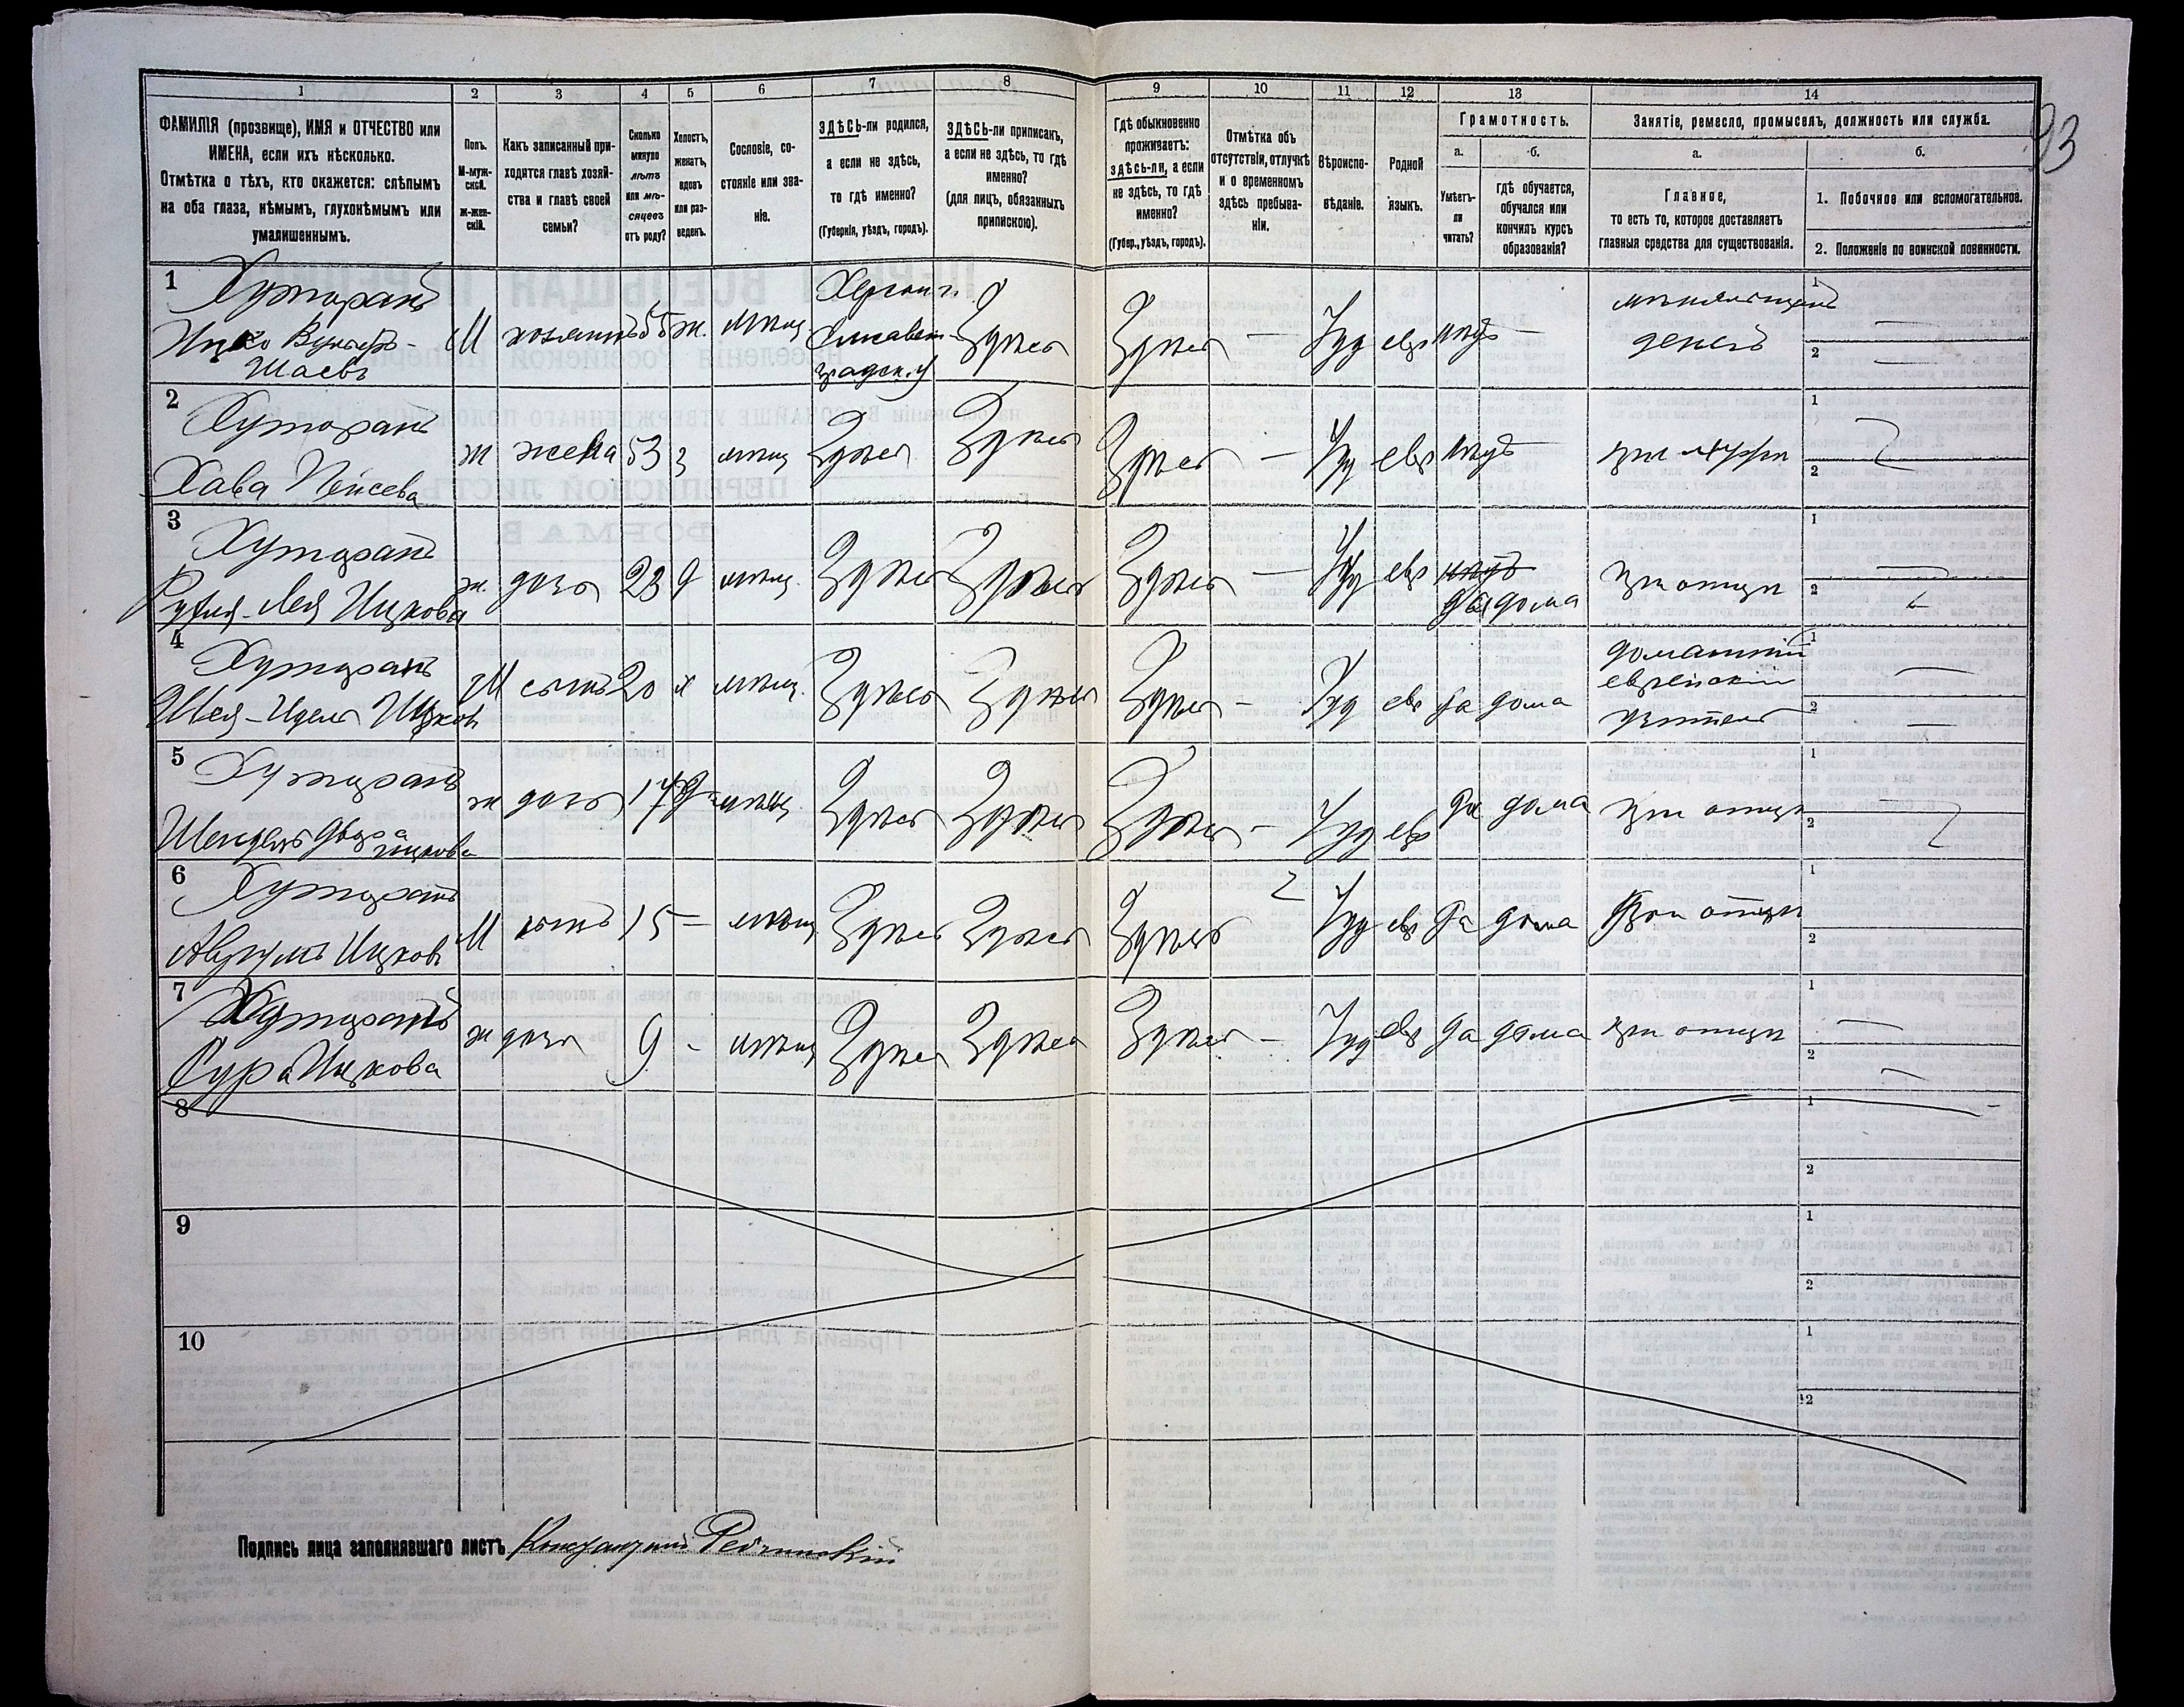 93
1 2 3 4 5 6 7 8 9 10 11 12 13 14
ФАМИЛІЯ (прозвище), ИМЯ и ОТЧЕСТВО или
ИМЕНА, если ихъ нѣсколько.
Отмѣтка о тѣхъ, кто окажется: слѣпымъ
на оба глаза, нѣмымъ, глухонѣмымъ или
умалишеннымъ.
Полъ.
М-муж-
ской.
Ж-жен-
скій.
Какъ записанный при-
ходится главѣ хозяй-
ства и главѣ своей
семьи?
Сколько
минуло
лѣтъ
или мѣ-
сяцевъ
отъ роду?
Холостъ,
женатъ,
вдовъ
или раз-
веденъ.
Сословіе, со-
стояніе или зва-
ніе.
ЗДѢСЬ-ли родился,
а если не здѣсь,
то гдѣ именно?
(Губернія, уѣздъ, городъ).
ЗДѢСЬ-ли приписанъ,
а если не здѣсь, то гдѣ
именно?
(для лицъ, обязанныхъ
припискою).
Гдѣ обыкновенно
проживаетъ:
здѣсь-ли, а если
не здѣсь, то гдѣ
именно?
(Губер., уѣздъ, городъ).
Отмѣтка объ
отсутствіи, отлучкѣ
и о временномъ
здѣсь пребыва-
ніи.
Вѣроиспо-
вѣданіе.
Родной
языкъ.
Грамотность.
а.
Умѣетъ-
ли
читать?
б.
гдѣ обучается,
обучался или
кончилъ курсъ
образованія?
Занятіе, ремесло, промыселъ, должность или служба.
а.
Главное,
то есть то, которое доставляетъ
главныя средства для существованія.
б.
1. Побочное или вспомогательное.
2. Положеніе по воинской повинности.
1 Хуторанъ
Шаевъ
М хозяинъ 55 ж. мѣщ. Херсон. г. Елисавет-
градск. у Здѣсь Здѣсь — Іуд евр нѣтъ —
денегъ
1
2
2 Хуторанъ
Хава Пейсева
ж жена 53 з мѣщ Здѣсь Здѣсь Здѣсь — Іуд евр нѣтъ при мужѣ
1
2
3 Хуторанъ
Лея Ицкова
ж. дочь 23 д мѣщ. Здѣсь Здѣсь Здѣсь — Іуд евр нѣтъ
да дома при отцѣ
1
2
4 Хуторанъ
Шая-Идель Ицковъ
М сынъ 20 х мѣщ. Здѣсь Здѣсь Здѣсь — Іуд евр да дома домашній
еврейскій
учитель
1
2
5 Хуторанъ
Шендель Двора
Ицкова
ж дочь 17 д мѣщ. Здѣсь Здѣсь Здѣсь — Іуд евр да дома при отцѣ
1
2
6 Хуторанъ
Аврумъ Ицковъ
М сынъ 15 — мѣщ Здѣсь Здѣсь Здѣсь Іуд евр да дома При отцѣ
1
2
7 Хуторанъ
Сура Ицкова
ж дочь 9 - мѣщ Здѣсь Здѣсь Здѣсь — Іуд евр да дома при отцѣ
1
2
8 1
2
9 1
2
10 1
2
Подпись лица заполнявшаго листъ